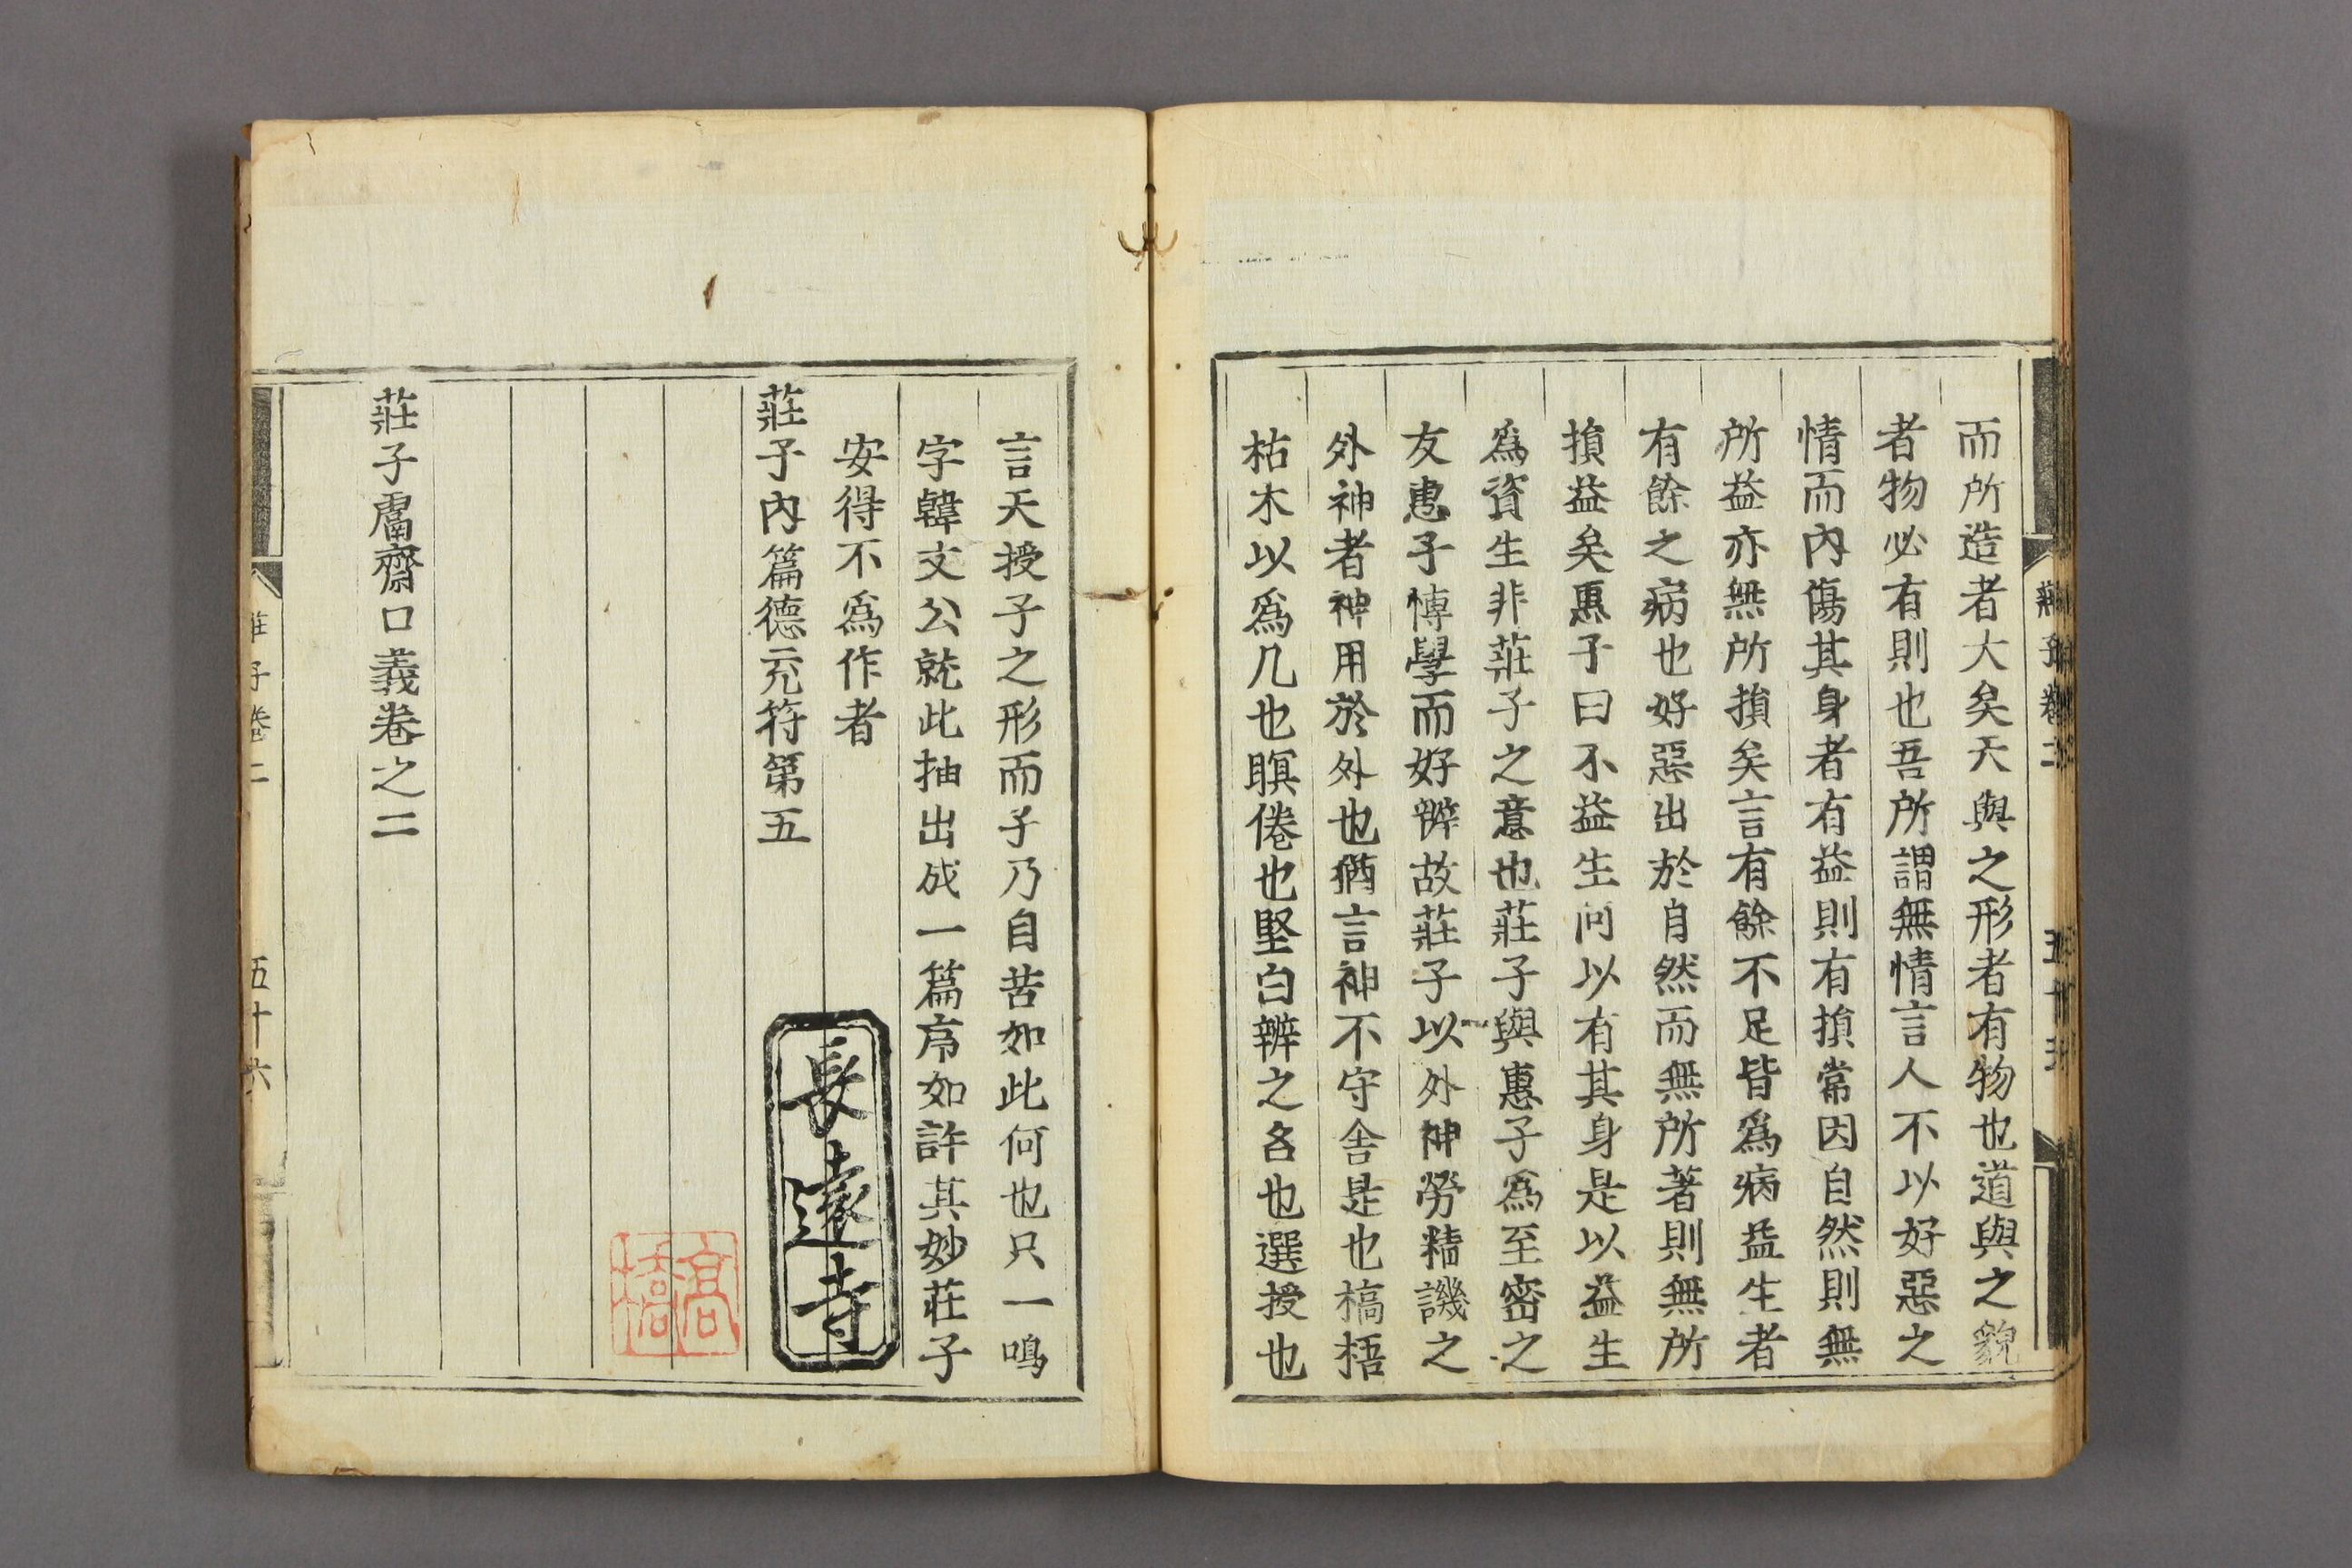 而所造者大矣天與之形者有物也道與之貌
者物必有則也吾所謂無情言人不以好惡之
情而內傷其身者有益則有損常因自然則無
所益亦無所損矣言有餘不足皆爲病益生者
有餘之病也好惡出於自然而無所著則無所
損益矣惠子曰不益生何以有其身是以益生
爲資生非莊子之意也莊子與惠子爲至密之
友惠子博學而好辨故莊子以外神勞精譏之
外神者神用於外也猶言神不守舍是也槁梧
枯木以爲几也瞑倦也堅白辨之名也選授也
言天授子之形而子乃自苦如此何也只一鳴
字韓文公就此抽出成一篇序如許其妙莊子
安得不爲作者
莊子內篇德充符第五
長遠寺
高橋
莊子鬳齋口義卷之二
莊子卷二
五十六